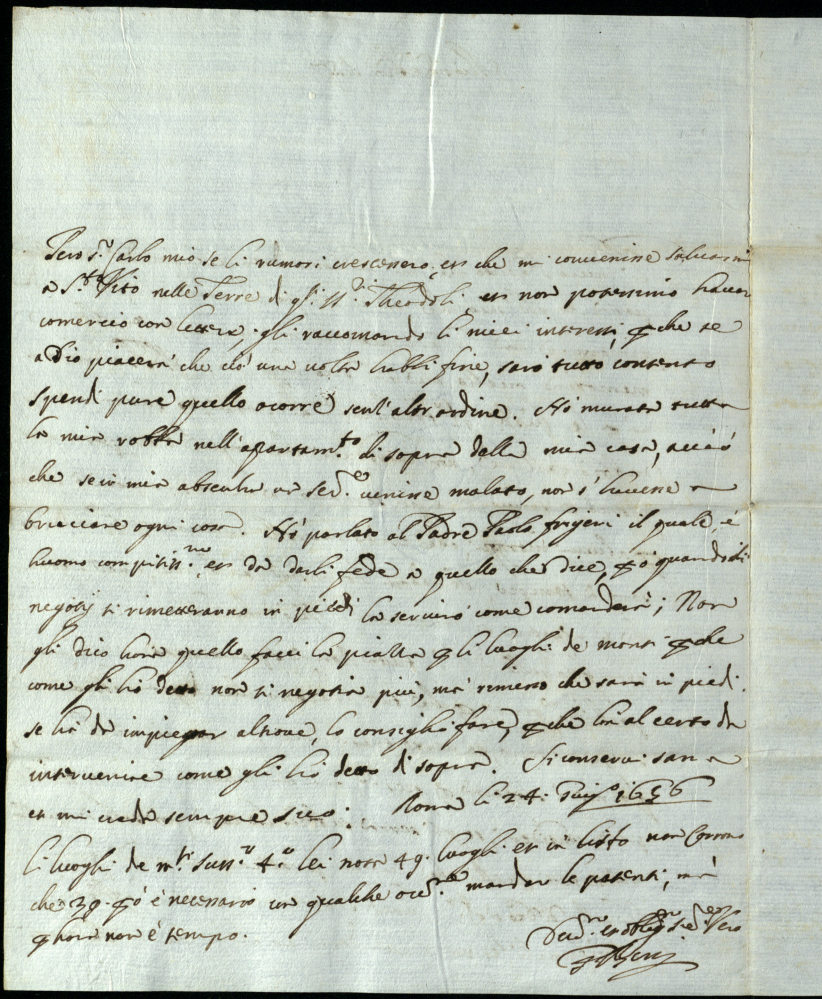 Pero S.r Carlo mio se li rumori crescessero, et che mi convenisse salvarmi
a S.to Vito nelle Terre di gl'Ill.ri Theodoli, et non potessimo haver
comercio con lettere, gli raccomando li miei interessi, che se
a Dio piacerà che ciò una volta habbi fine, sarò tutto contento
spendi pure quello ocorre senz'altr'ordine. Hò murata tutta
la mia robba nell'apartam.to di sopra della mia casa, acciò
che se in mia absentia un ser.e venisse malato, non s'havesse a
brucciare ogni cosa. Hò parlato al Padre Paolo frigeri il quale è
huomo compitiss.mo et da darli fede a quello che dice, però quando li
negotij si rimetteranno in piedi la servirò come comanderà; Non
gli dico hora quello facci la piazza per li luoghi de monti perche
come gli hò detto non si negotia più, mà rimesso che sarà in piedi
se hà da impiegar altrove, lo consiglio fare, perche hà al certo da
intervenire come gli hò detto di sopra. Si conservi sana
et mi creda sempre suo: Roma li 24: Giug.o 1656
li luoghi de m.ti Suss.o 4.o lei nota 49. luoghi et in listo non corrono
che 39. però è necessario con qualche occ.ne mandar le patenti, mà
per hora non è tempo.
Ser.re Vero